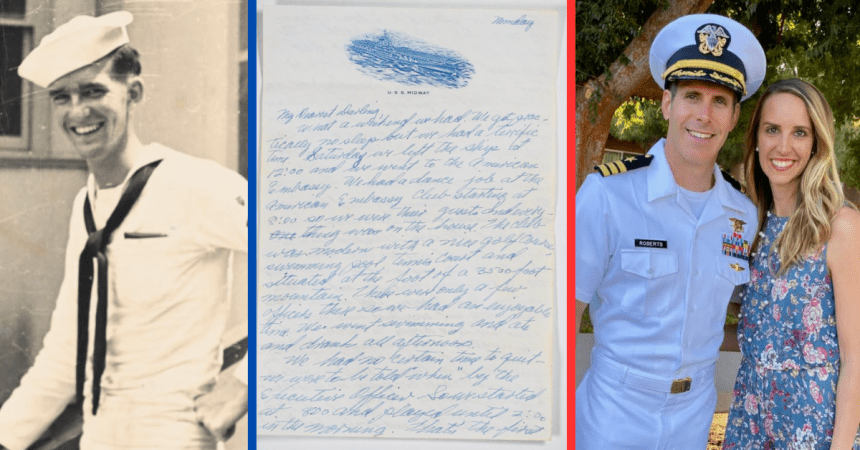 Monday
U.S.S. MIDWAY
My Dearest Darling,
What a weekend we had. We got prac-
tically no sleep but we had a terrific
time. Saturday we left the ship at
12:00 and we went to the American
Embassy. We had a dance job at the
American Embassy Club starting at
8:00 so we were their guests and every-
thing was on the house. The club
was modern with a nice golf course
swimming pool, tennis court and
situated at the foot of a 3500 foot
mountain. There were only a few
officers there so we had an enjoyable
time. We went swimming and ate
and drank all afternoon.
We had no certain time to quit
we were to be told "when" by the
Executive Officer. So we started
at 8:00 and played until 2:00
in the morning. That's the first
ROBERTS